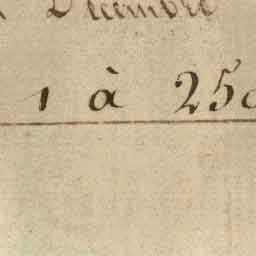 Decembre
1 à 250